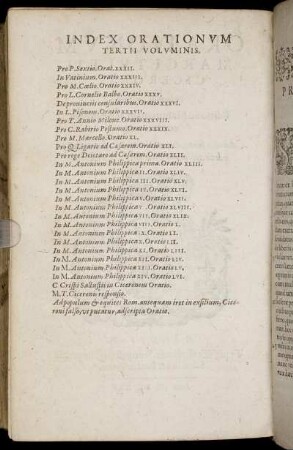 INDEX ORATIONVM
TERTII VOLVMINIS.
Pro P. Sextio. Orat. XXXII.
In Vatinium. Oratio XXXIII.
Pro M. Cœlio. Oratio XXXIV.
Pro L. Cornelio Balbo. Oratio XXXV.
De prouinciis consularibus. Oratio XXXVI.
In L. Pisonem. Oratio XXXVII.
Pro T. Annio Milone. Oratio XXXVIII.
Pro C. Rabirio Postumo. Oratio XXXIX.
Pro M. Marcello. Oratio XL.
Pro Q. Ligario ad Cæsarem. Oratio XLI.
Pro rege Deiotaro ad Cæsarem. Oratio XLII.
In M. Antonium Philippica prima. Oratio XLIII.
In M. Antonium Philippica II. Oratio XLIV.
In M. Antonium Philippica III. Oratio XLV.
In M. Antonium Philippica IIII. Oratio XLVI.
In M. Antonium Philippica V. Oratio XLVII.
In M. Antonium Philippica VI. Oratio XLVIII.
In M. Antonium Philippica VII. Oratio XLIX.
In M. Antonium Philippica VIII. Oratio L.
In M. Antonium Philippica IX. Oratio LI.
In M. Antonium Philippica X. Oratio LII.
In M. Antonium Philippica XI. Oratio LIII.
In M. Antonium Philippica XII. Oratio LIV.
In M. Antonium Philippica XIII. Oratio LV.
In M. Antonium Philippica XIV. Oratio LVI.
C. Crispi Sallustii in Ciceronem Oratio.
M. T. Ciceronis responsio.
Ad populum & equites Rom. antequam iret in exsilium, Cice
roni falso, vt putatur, adscripta Oratio.